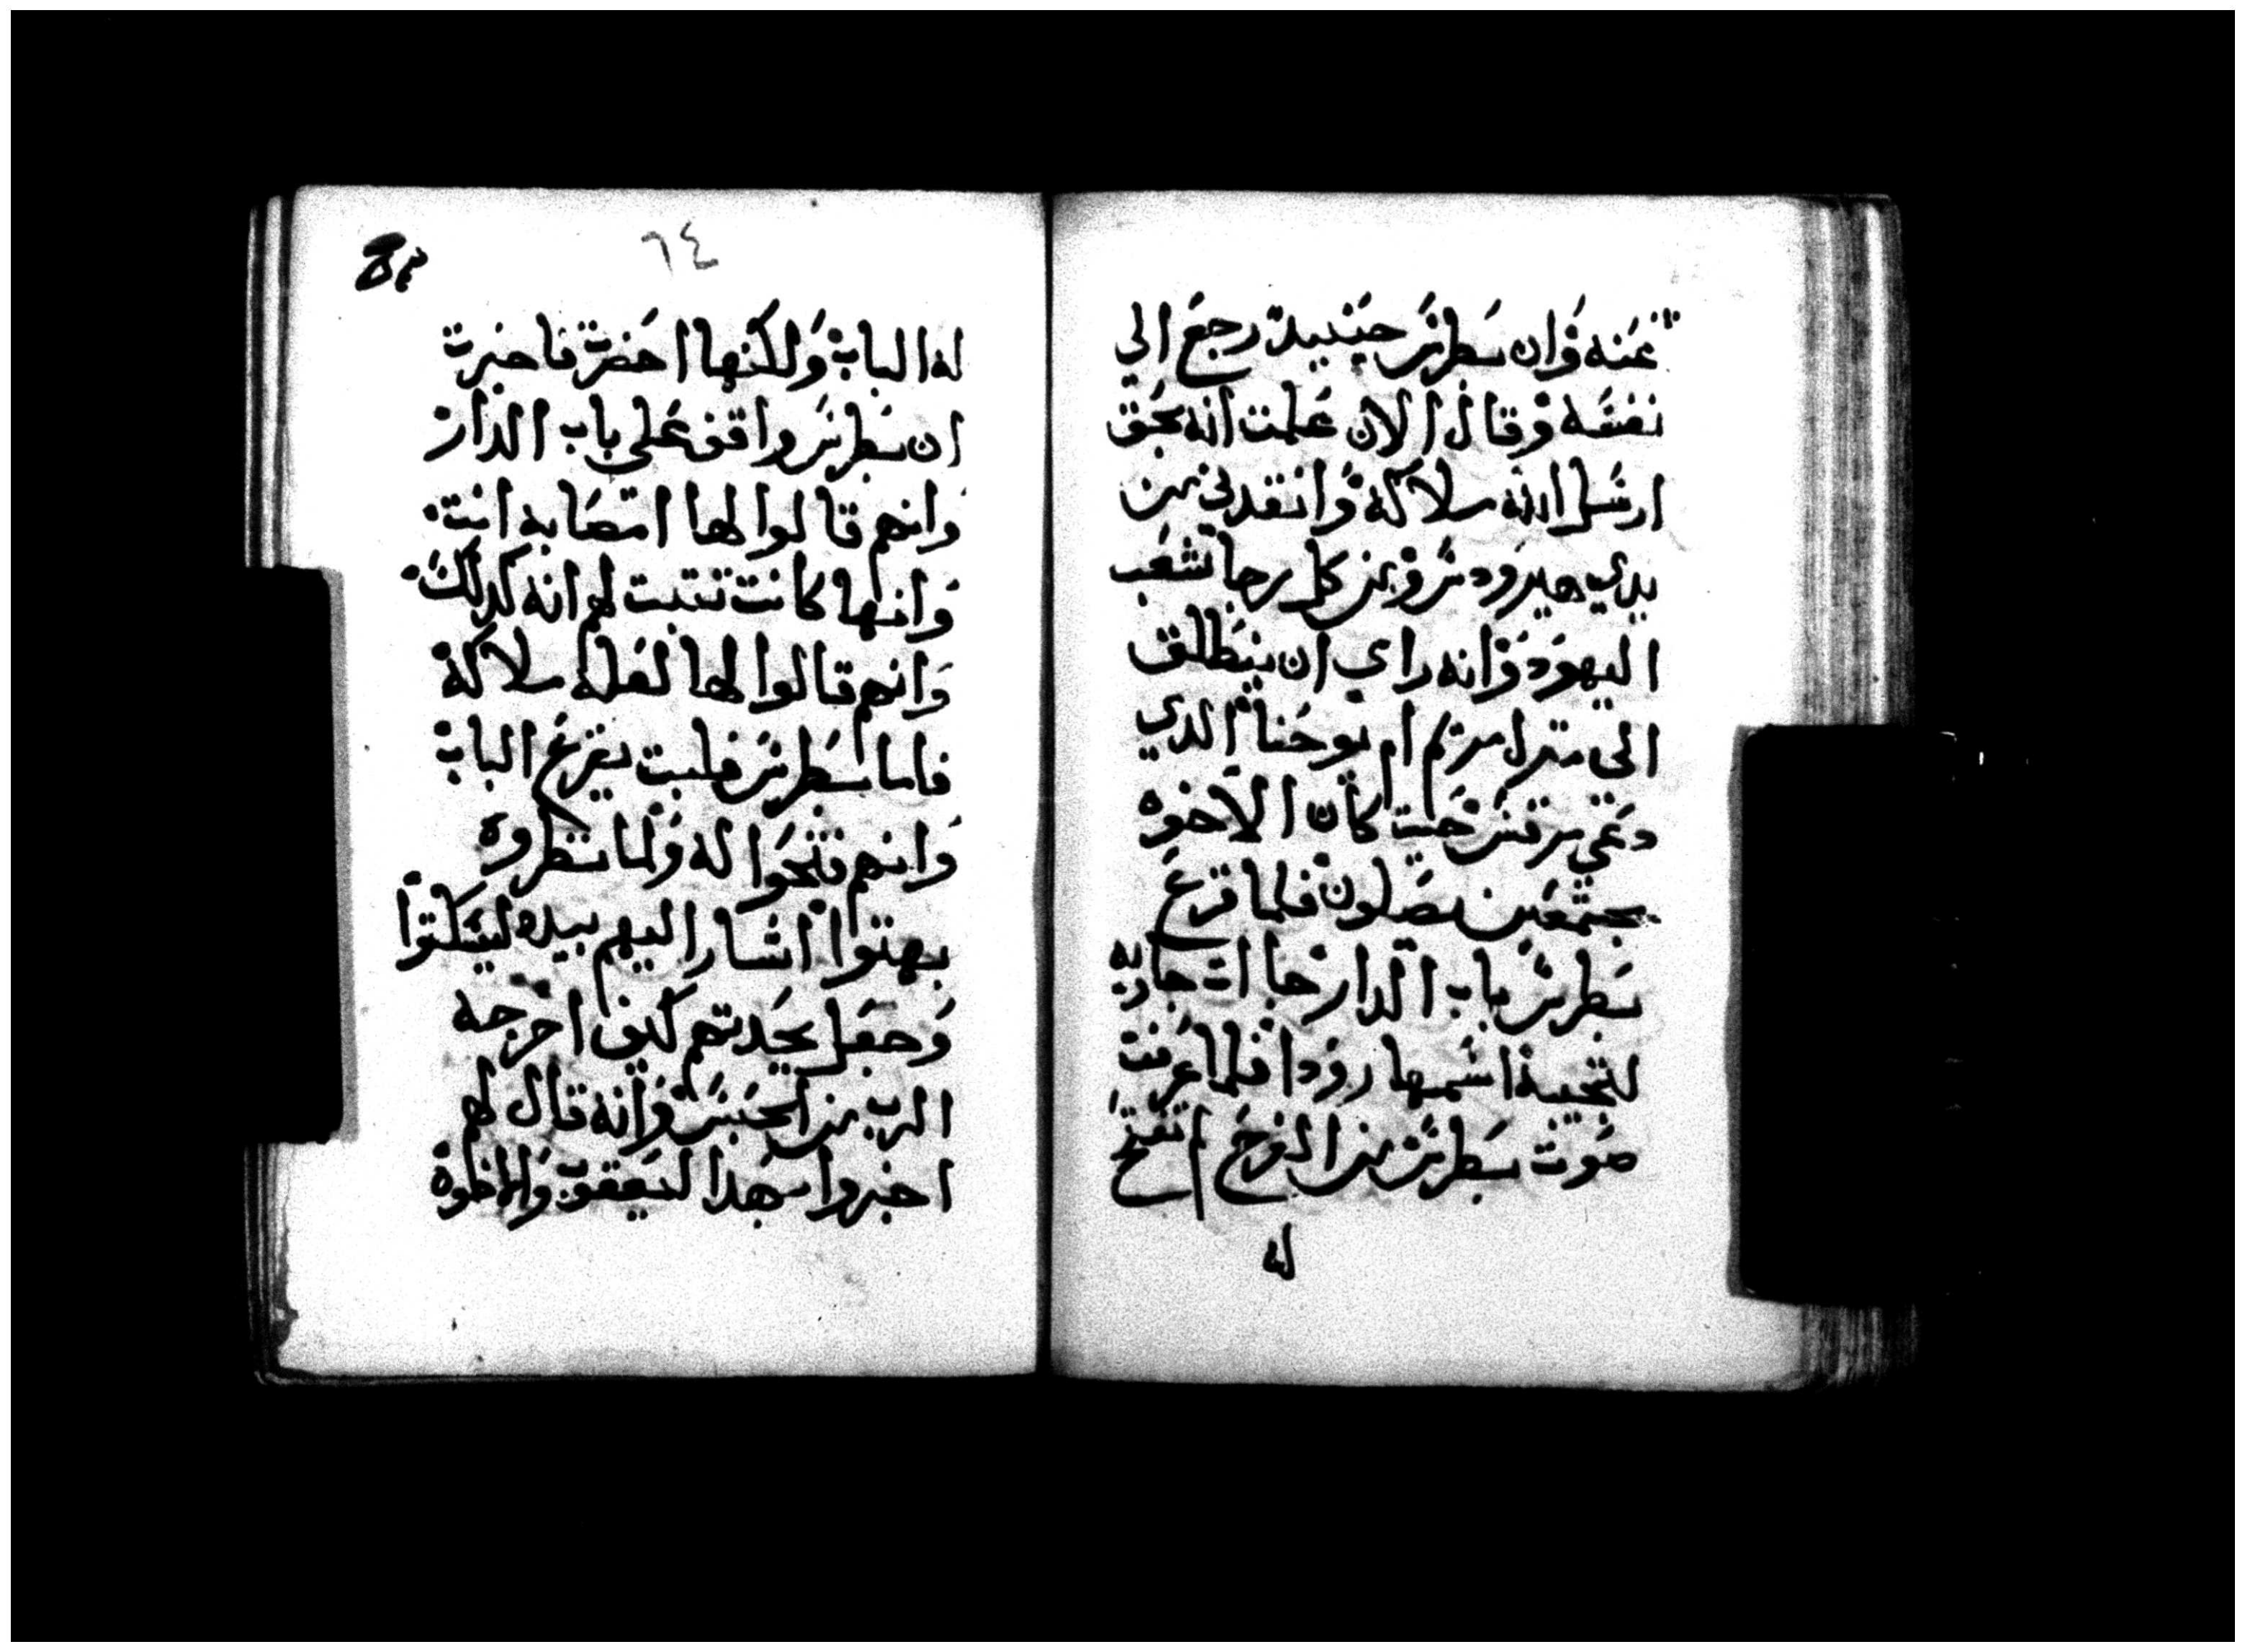 عنه وان بطرس حينيد رجع الي
نفسه وقال الان علمت انه بحق
ارسل الله ملاكه وانقدني من
يدي هيرودس ومن كل رجا شعب
اليهود وانه راي ان ينطلق
الي منزل مريم ام يوحنا الدي
دعي مرقس حيت كان الاخوه
مجتمعين يصلون فلما قرع
بطرس باب الدار جاات جاريه
لتجيبه اسمها رودا فلما عرفت
صوت بطرس من الفرح لم تفتح
له
٦٤
له الباب ولكنها احضرت فاخبرت
ان بطرس واقف علي باب الدار
وانهم قالوا لها امصابه انت
وانها كانت تتبت لهم انه كدلك
وانهم قالوا لها لعله ملاكه
فاما بطرس فلبت يقرع الباب
وانهم فتحوا له ولما نظروه
بهتوا اشار اليهم بيده ليسكتوا
وجعل يحدتهم كيف اخرجه
الرب من الحبس وانه قال لهم
اخبروا بهدا ليعقوب والاخوة